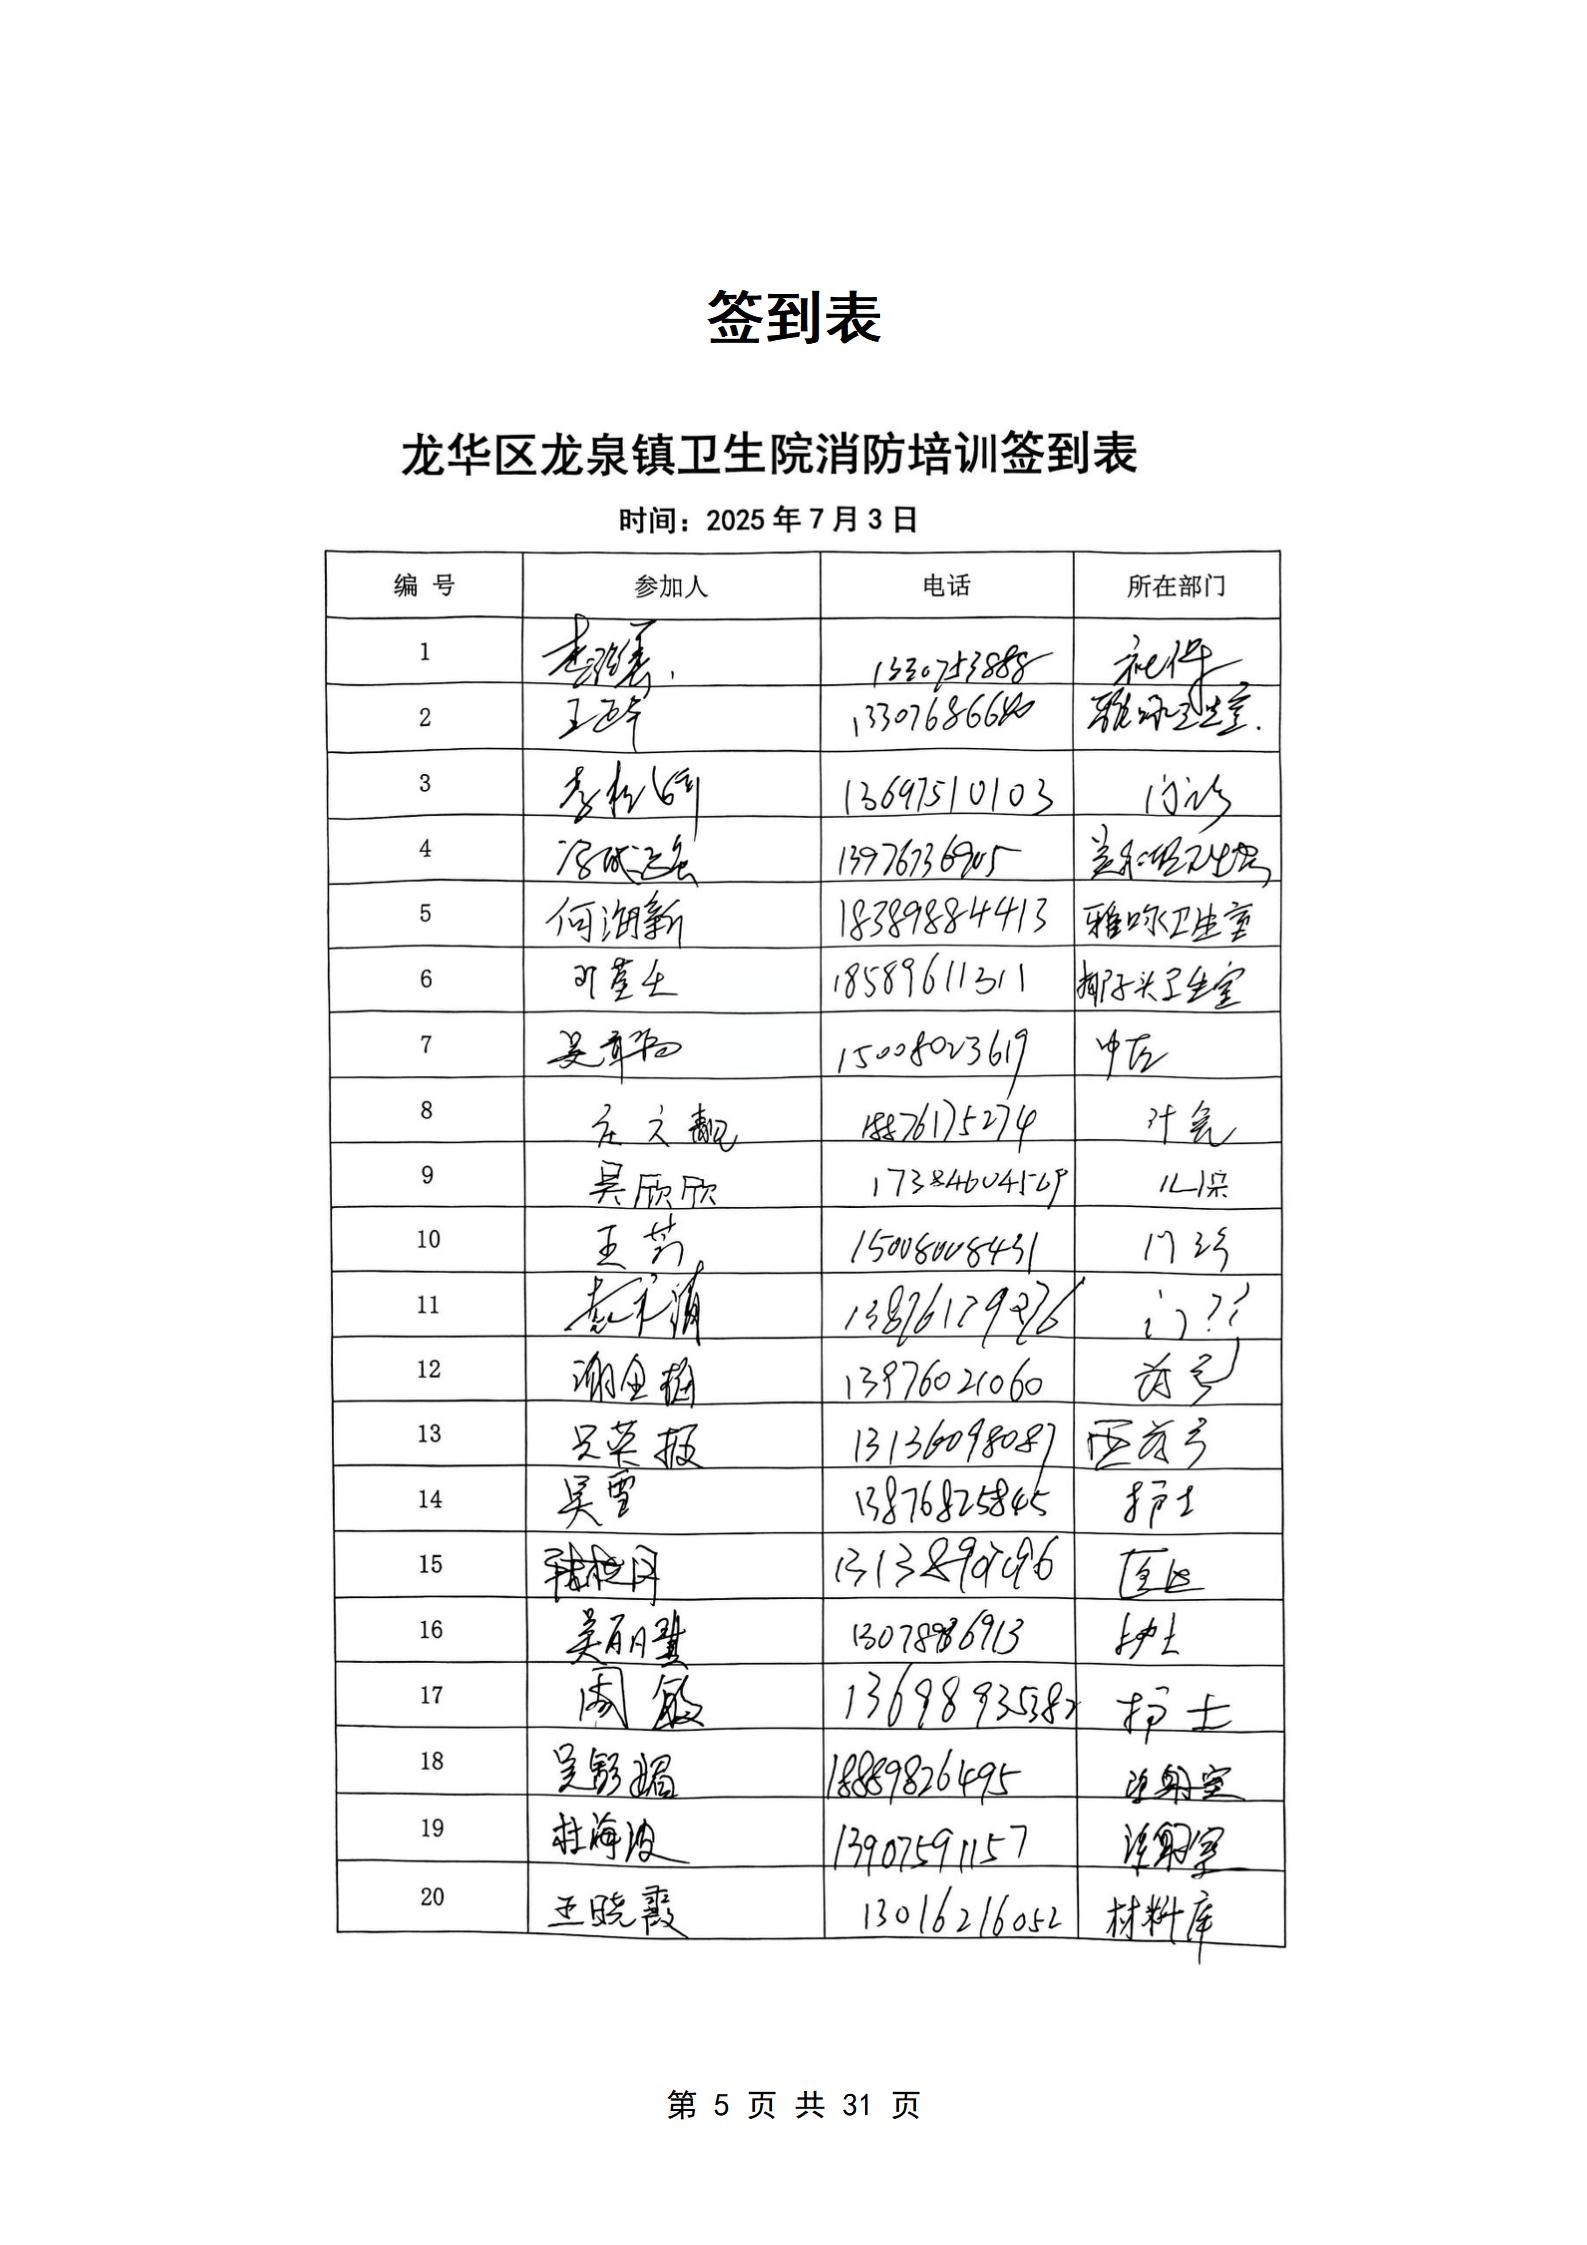 签到表
龙华区龙泉镇卫生院消防培训签到表
时间：2025 年 7 月 3 日
编 号 参加人 电话 所在部门
1 1330753888 社保
2 王 13307686640 雅咏卫生室.
3 李 13697510103 门诊
4 13976736905
5 何海新 18389884413 雅咏卫生室
6 18589611311 椰子头卫生室
7 吴 15008023619 中医
8 庄文靓 18876175274 计免
9 吴欣欣 17384604569 儿保
10 王芳 15008008431 门诊
11 13876179276 门??
12 谢 13976021060 药房
13 吴英 13136098087 西药房
14 吴雪 13876825845 护士
15 月
16 吴丽 13078986913 护士
17 周敏 13698935382 护士
18 吴 18889826495 注射室
19 杜海波 13907591157 注射室
20 王晓霞 13016216052 材料库
第 5 页 共 31 页